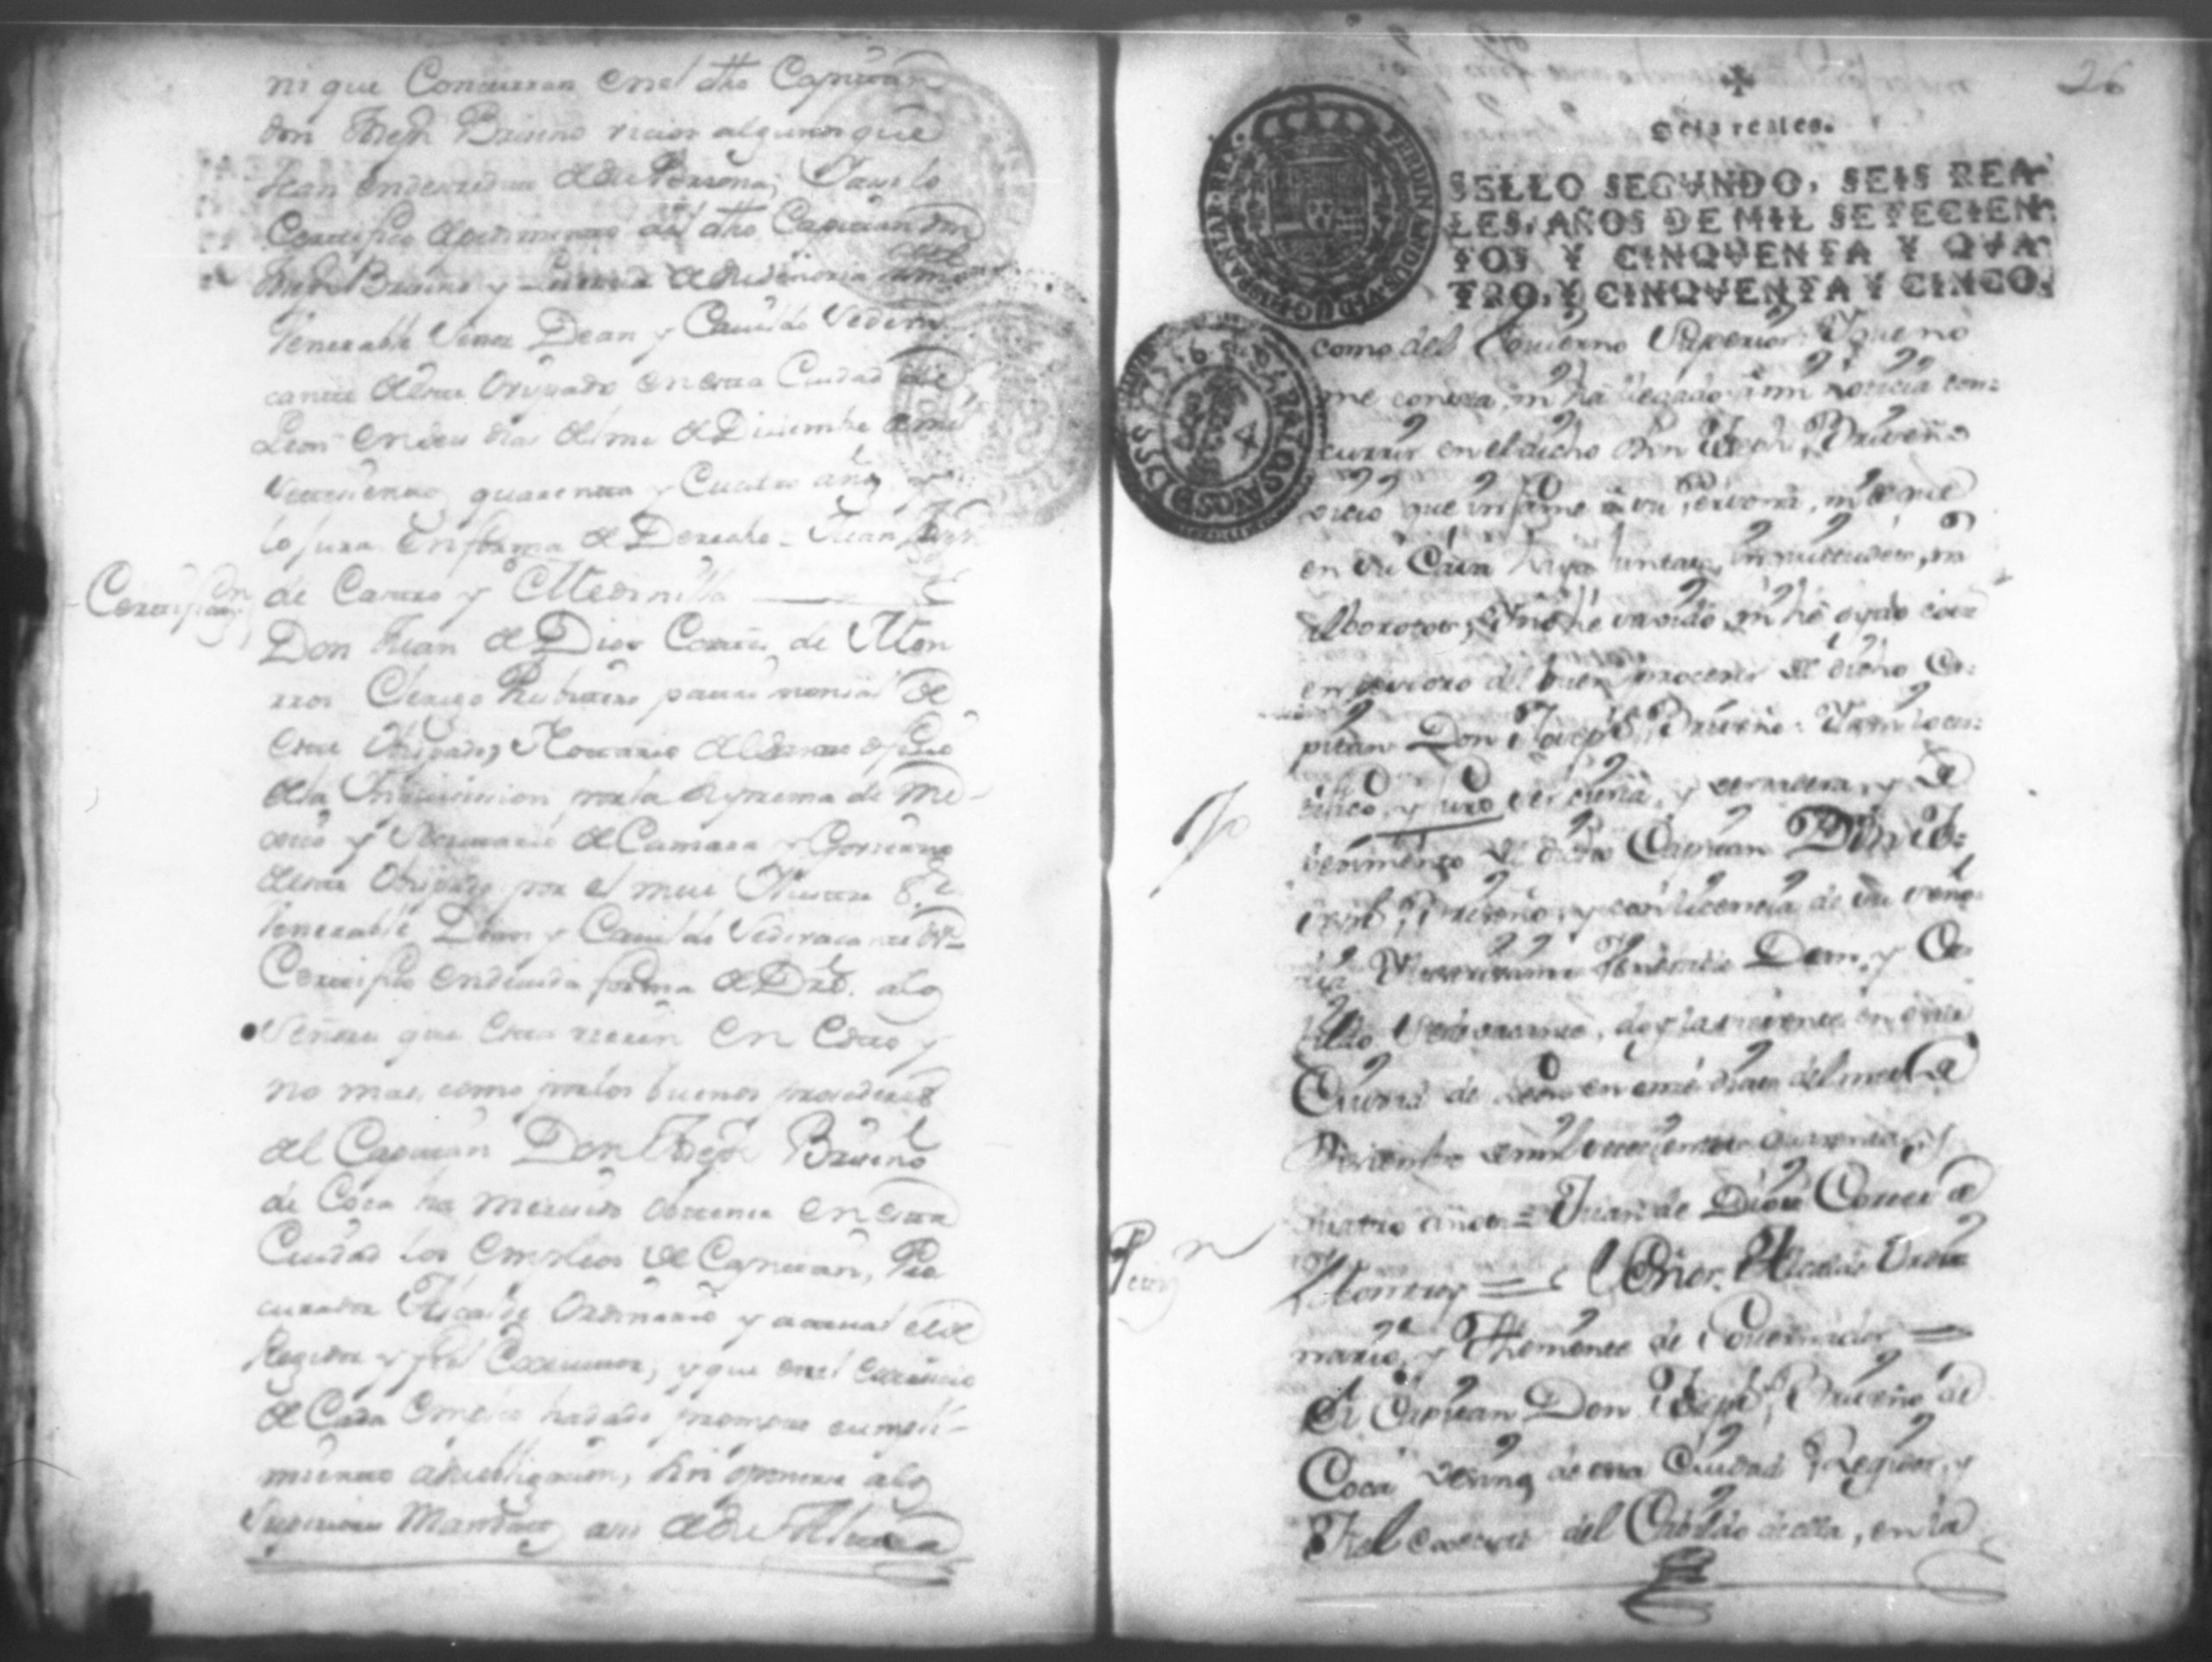 ni que Concurran en el dho Capitan
don Joseph Briseño vicios algunos que
sean endesredito de su Persona, Y assi lo
Certifico de pedimento del dho Capitan don
Joseph Briseño y Licencia de su Señoria
Venerable Señor Dean y Cavildo Sedeva
cante de este Obispado en esta Ciudad de
Leon en dies dias del mes de Diziembre de mil
setecientos quarenta y Cuatro años y
lo juro en forma de Derecho = Juan
Certificaon
de Castro y Medinilla
Don Juan de Dios Cortés de Mon
rroi Clerigo Presbitero patrimonial de
este Obispado, Notario del Santo oficio
de la Inquisicion por la Suprema de Me-
xico y Secretario de Camara y Govierno
de este Obispado por el mui Illustre S.r
Venerable Dean y Cavildo Sedevacante
Certifico en devida forma de Dro. a los
Señores que esta vieren en Como y
no mas, como por los buenos procederes
del Capitan Don Joseph Briseño
de Coca ha merecido obtener en esta
Ciudad los empleos de Capitan, Pro
curador Alcalde Ordinario y actual el de
Regidor y fiel Executor, y que en el exercicio
de Cada empleo ha dado promto cumpli-
miento a su obligacion, sin oponerse a los
Superiores Mandatos assi de Su Alteza
26
Seis reales.
SELLO SEGVNDO, SEIS REA-
LES, AÑOS DE MIL SETECIEN-
TOS Y CINQVENTA Y QVA-
TRO, Y CINQVENTA Y CINCO.
como del Govierno Superior: Y que no
me consta, ni ha llegado a mi noticia con-
currir en el dicho Don Joseph Briseño
vicio que infame a su persona, ni que
en su Casa haya juntas, inquietudes, ni
alborotos, Y no hé savido, ni hé oydo cosa
en del buen proceder de dicho Ca-
pitan Don Joseph Briseño: Y assi lo cer-
tifico, y juro ser cierta, y verdadera, y de
pedimento de dicho Capitan Don Jo-
seph Briseño, y con licencia de su Seño-
ria Venerable Dean, y Ca-
bildo Sedevacante, doy la presente en esta
Ciudad de Leon en onze dias del mes de
Diziembre de mil setecientos quarenta, y
quatro años = Juan de Dios Cortes de
Peticion
Monrroy = Señor Alcalde Ordi-
nario, y Theniente de Governador =
El Capitan Don Joseph Briseño de
Coca Vezino de esta Ciudad Regidor, y
Fiel executor del Cabildo de ella, en la